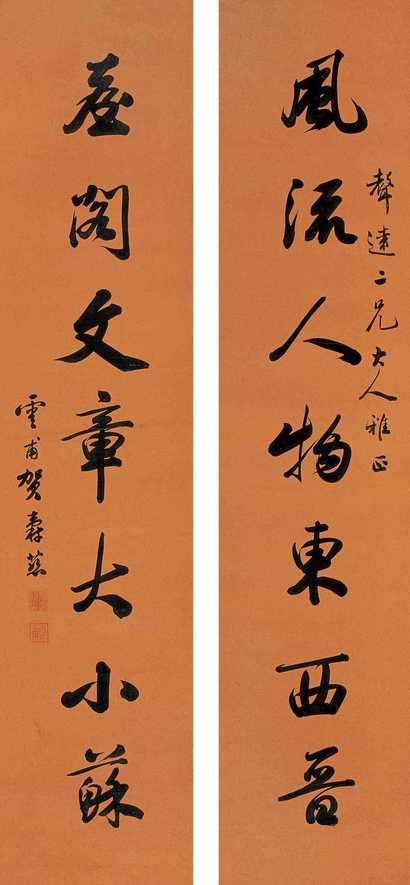 風流人物東西晉
聲達二兄大人雅正
臺閣文章大小蘇
雲甫賀壽慈